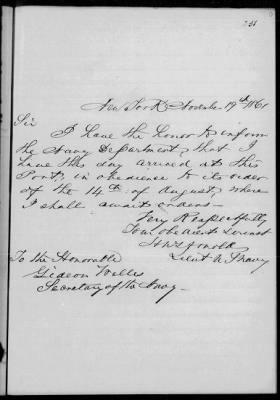 New York November 19th 1861
Sir
I have the honor to inform
the Navy Department, that I
have this day arrived at this
Port, in obedience to its order
of the 14th of August, where
I shall await orders—
Very Respectfully
Your obedient Servant
Lieut U S Navy
To the Honorable
Gideon Welles
Secretary of the Navy—